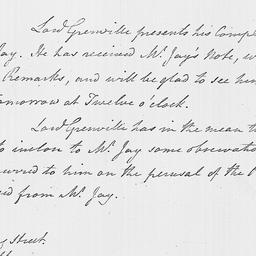 Lord Grenville presents his Compl
Jay. He has received Mr. Jay's Note, w
Remarks, and will be glad to see him
tomorrow at Twelve o'clock.
Lord Grenville has in the mean t
to inclose to Mr. Jay some observatio
urred to him on the perusal of the
ed from Mr. Jay.
Street